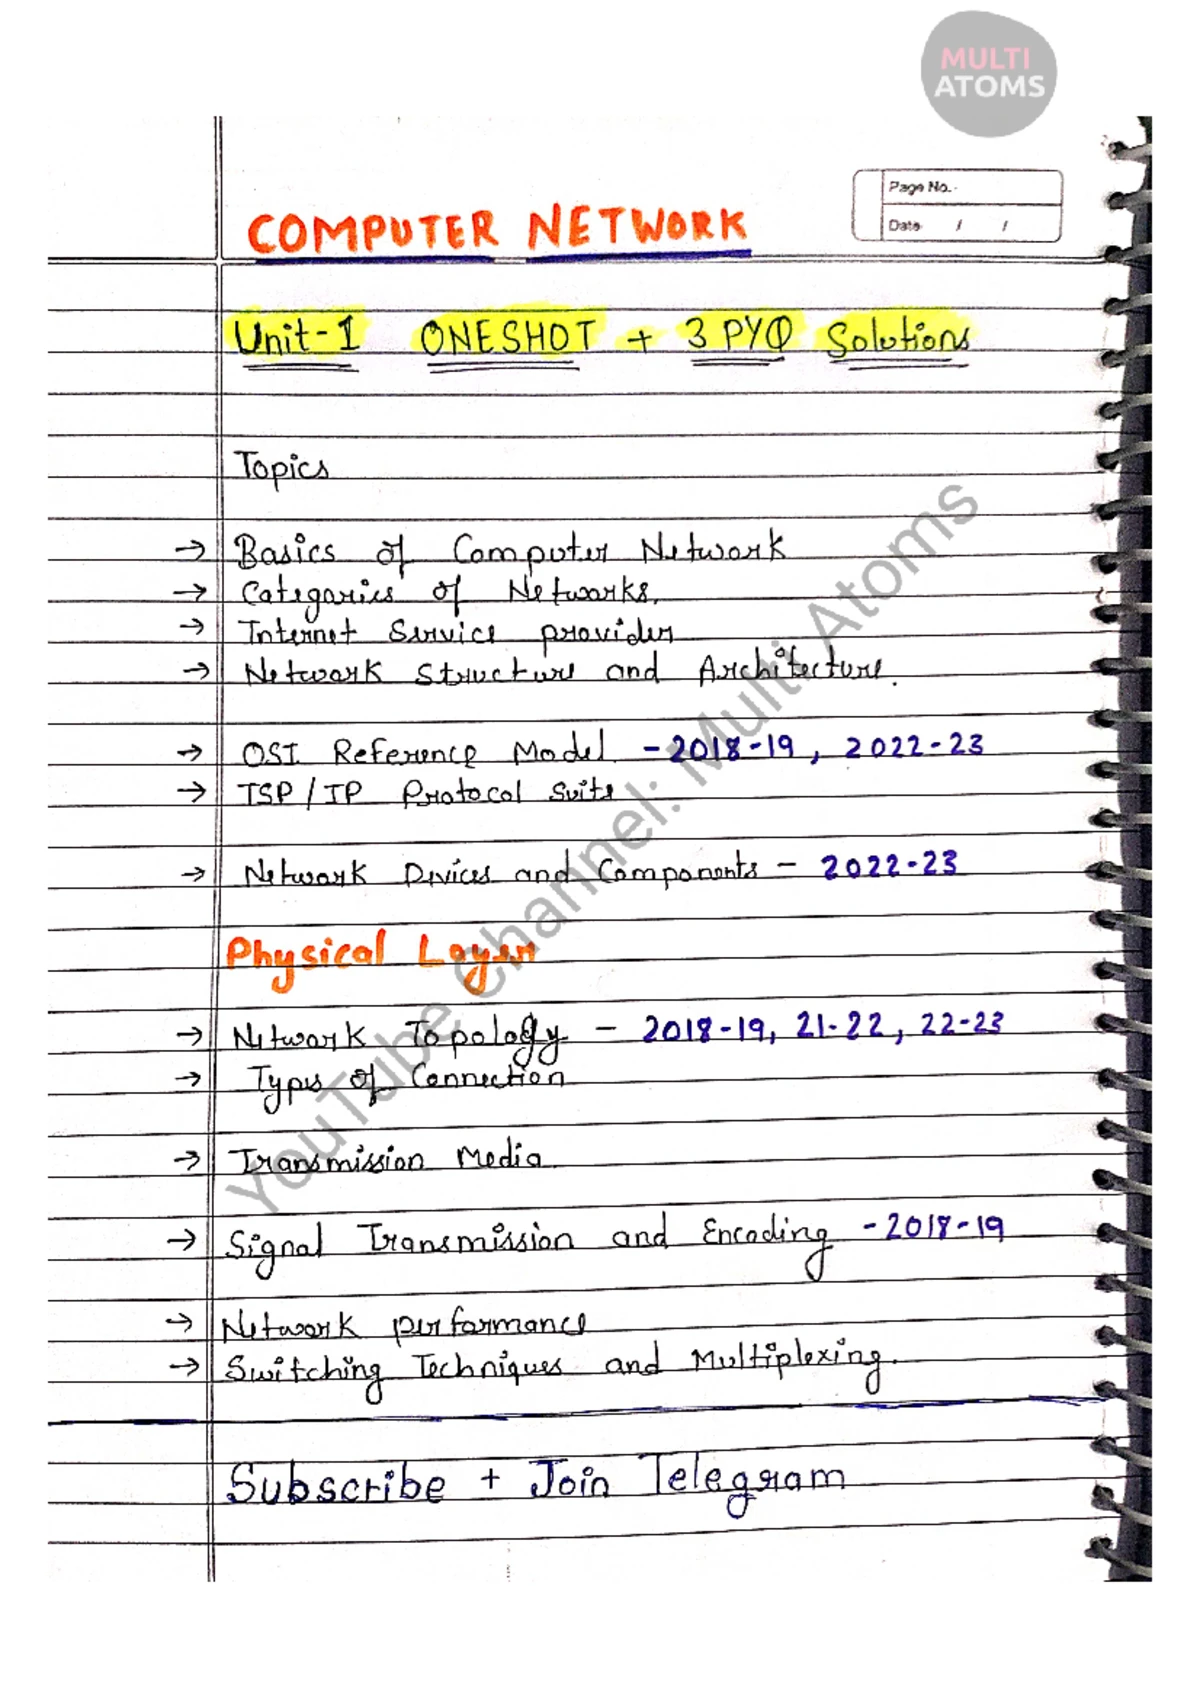 MULTI
ATOMS
Page No.
Date / /
COMPUTER NETWORK
Unit-1 ONESHOT + 3 PYQ Solutions
Topics
→ Basics of Computer Network
→ Categories of Networks.
→ Internet Service provider
→ Network Structure and Architecture.
→ OSI Reference Model - 2018-19, 2022-23
→ TSP/IP Protocol Suite
→ Network Devices and Components - 2022-23
Physical Layer
→ Network Topology - 2018-19, 21-22, 22-23
→ Types of Connection
→ Transmission Media
→ Signal Transmission and Encoding - 2018-19
→ Network performance
→ Switching Techniques and Multiplexing.
Subscribe + Join Telegram
YouTube Channel: Multi Atoms